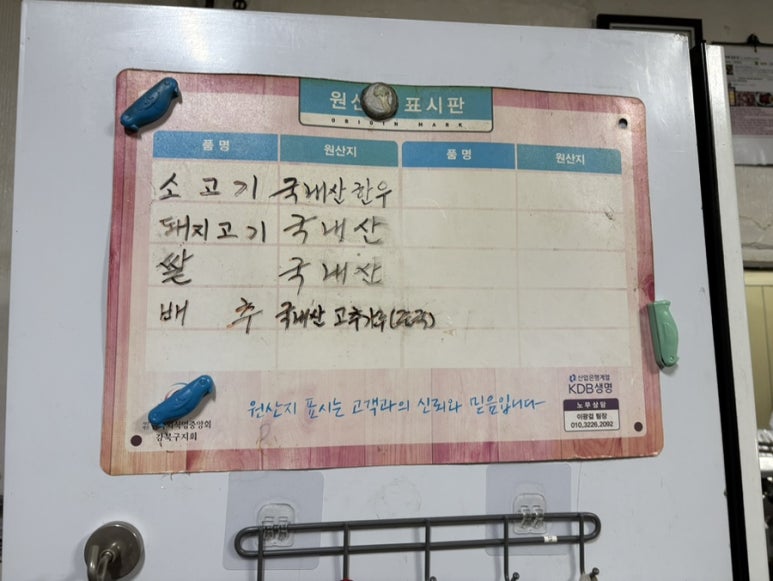 표시판
ORIGIN MARK
품 명 원산지 품 명 원산지
소고기 국내산 한우
돼지고기 국내산
쌀 국내산
배 추 국내산 고추가루
원산지 표시는 고객과의 신뢰와 믿음입니다
산업은행계열
KDB생명
노무상담
이광걸 팀장
010.3226.2092
강북구지회